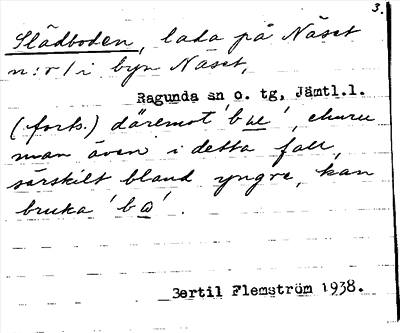 3.
Slädboden, lada på Näset
n:r 1 i byn Näset,
Ragunda sn o. tg, Jämtl.l.
(forts.) däremot 'bω', ehuru
man även i detta fall,
särskilt bland yngre, kan
bruka 'bω'.
Bertil Flemström 1938.